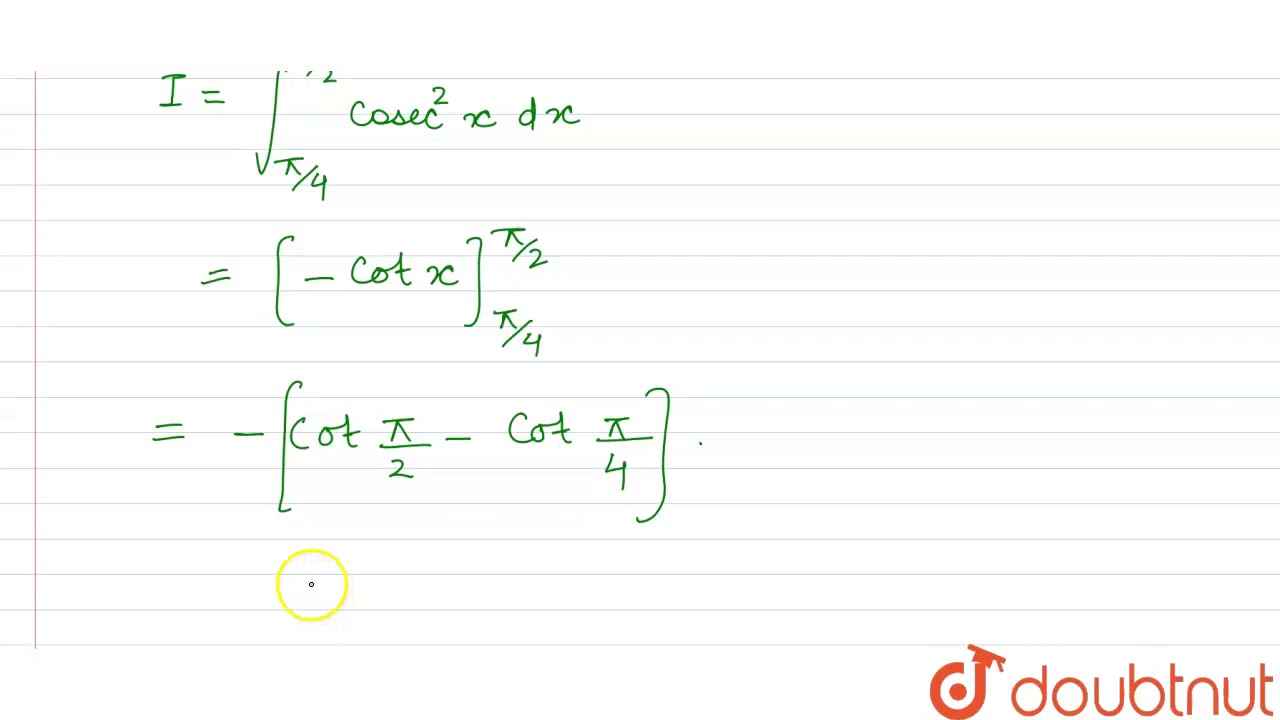 I = ∫_{π/4}^{π/2} Cosec² x dx
= [− Cot x]_{π/4}^{π/2}
= − [Cot π/2 − Cot π/4] .
doubtnut